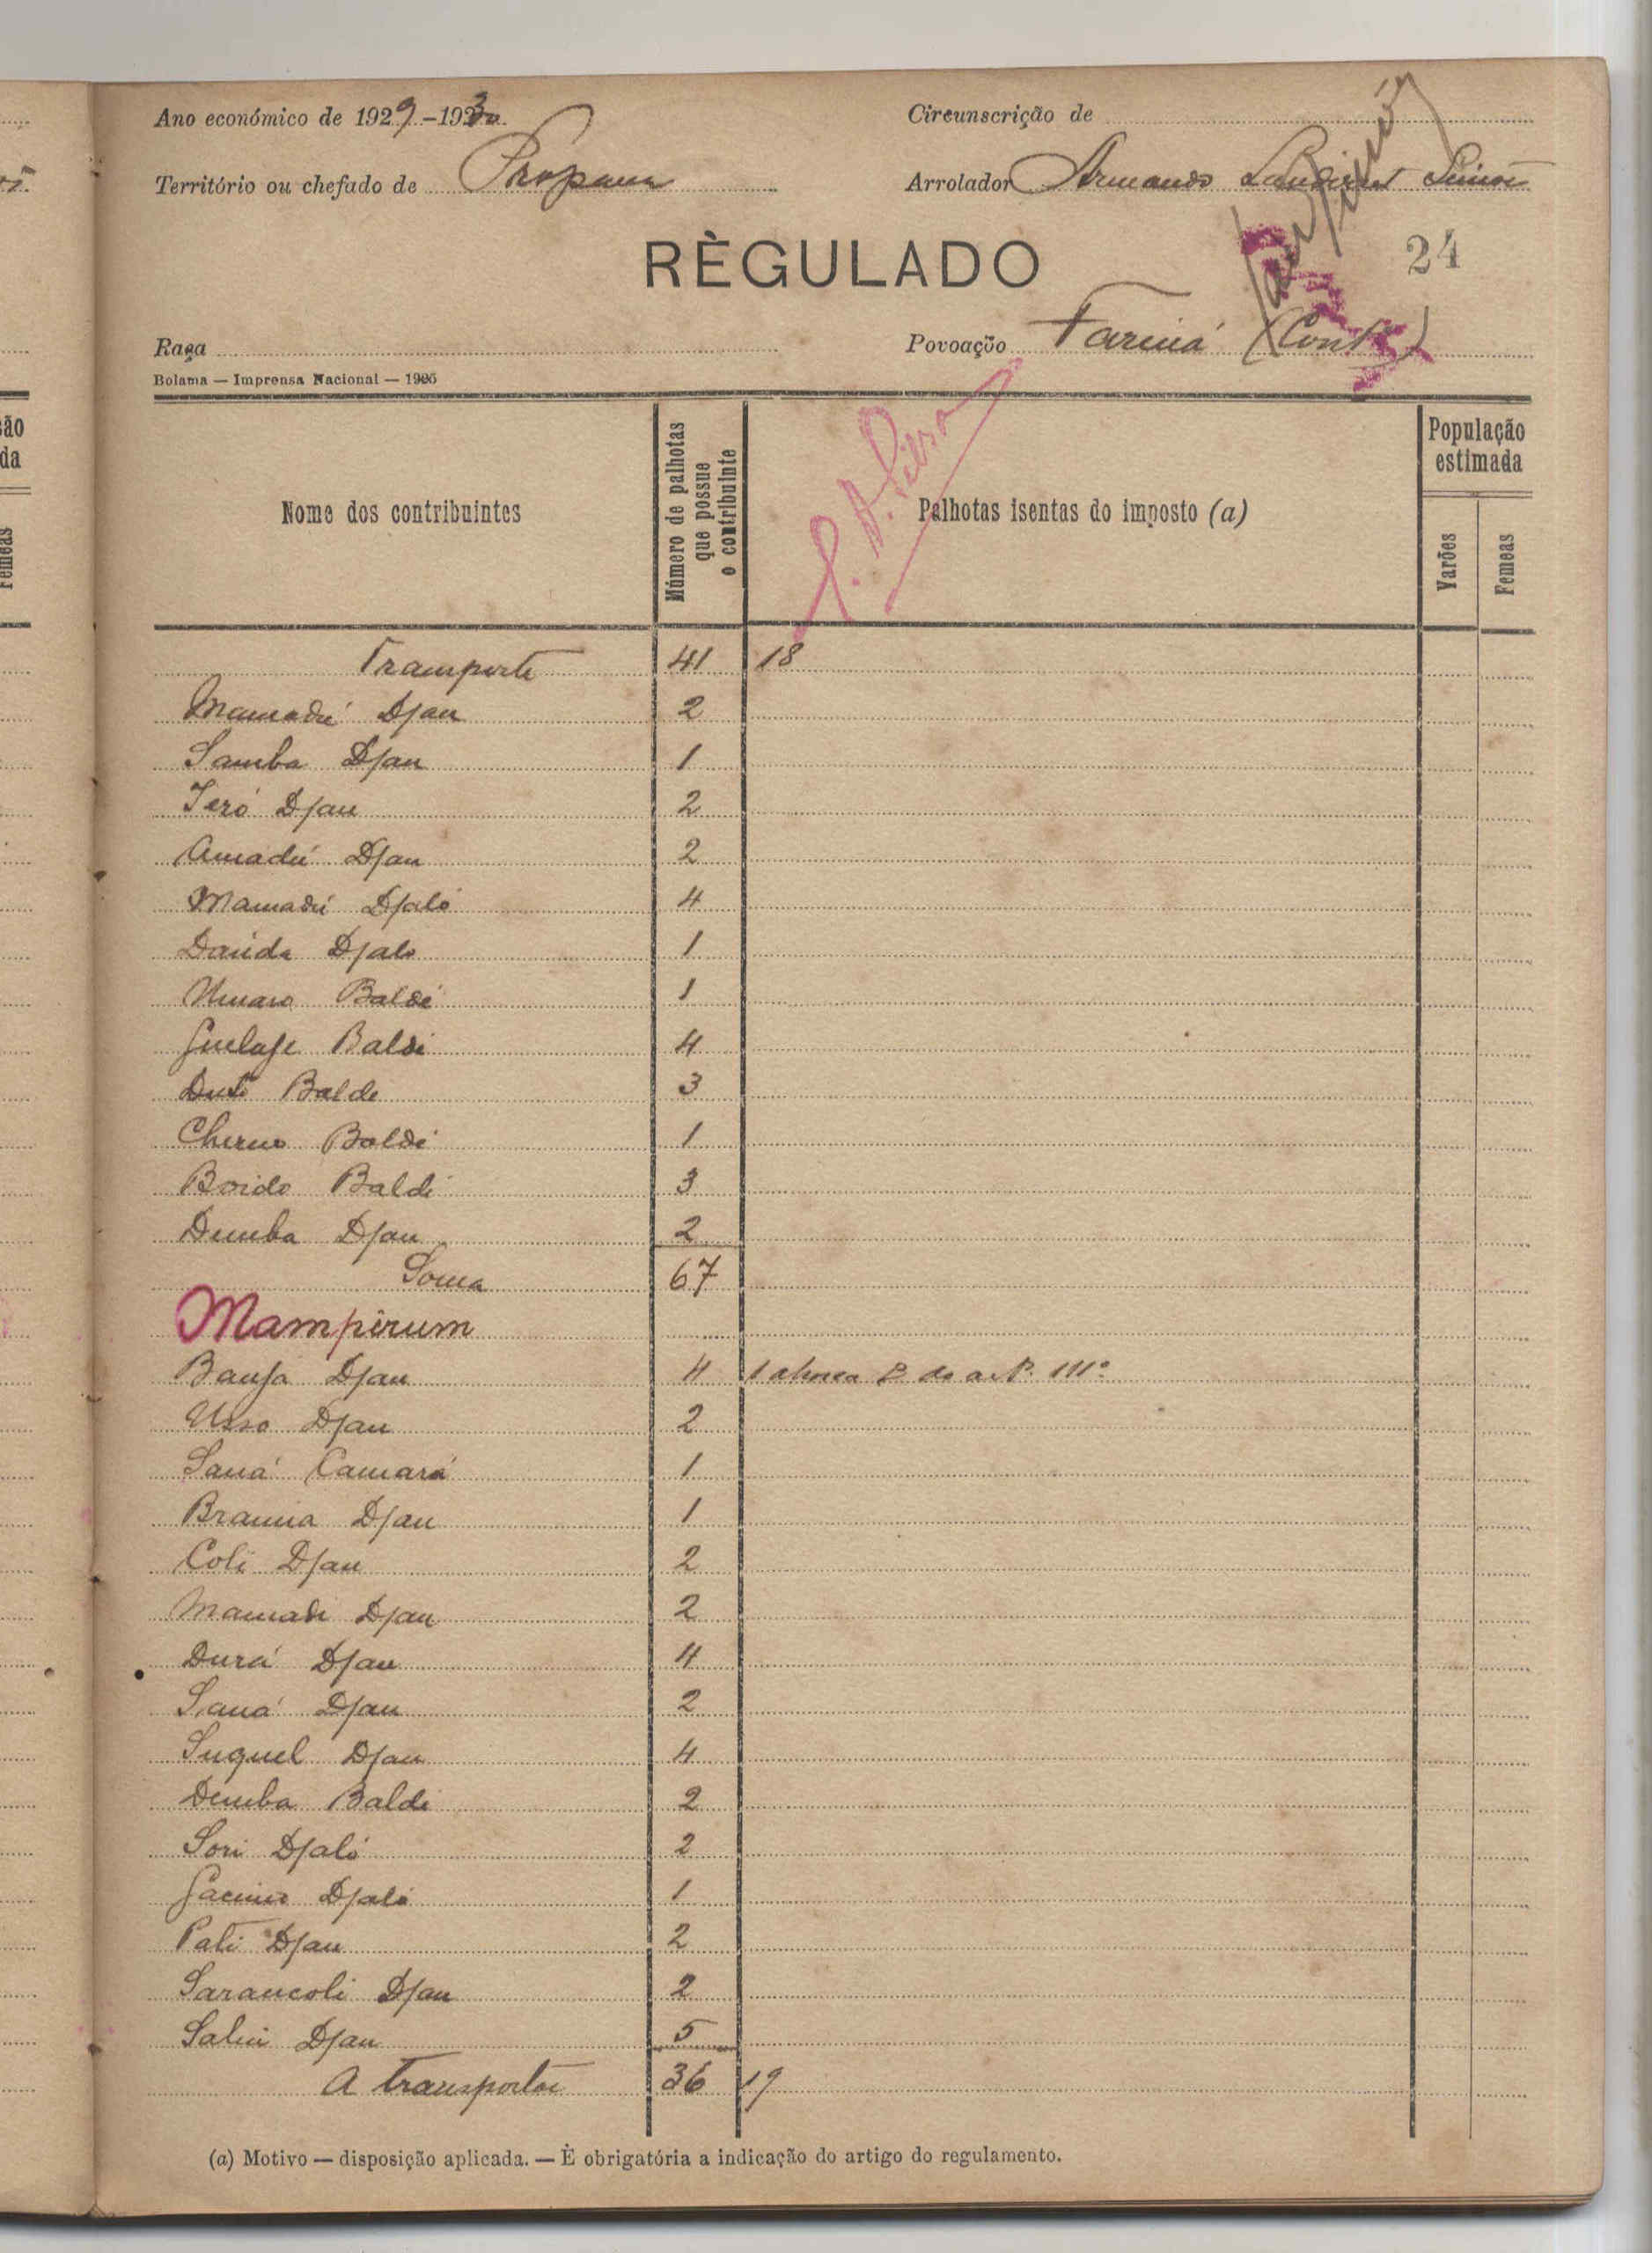 Ano económico de 1929-1930
Circunscrição de
Território ou chefado de Propana
Arrolador Armando Júnior
RÈGULADO
24
Raça
Povoação Fariná (Cont.)
Bolama — Imprensa Nacional — 1925
Nome dos contribuintes
Número de palhotas que possue o contribuinte
Palhotas isentas do imposto (a)
População estimada
Varões
Femeas
Transporte 41 18
Mamadú Djau 2
Samba Djau 1
Jeró Djau 2
Amadú Djau 2
Mamadú Djaló 4
Daúda Djalo 1
Umaro Baldé 1
Guelaje Baldé 4
Baldé 3
Cherno Baldé 1
Boido Baldé 3
Demba Djau 2
Soma 67
Mampirum
Banja Djau 4 1 do art. 111º
Usso Djau 2
Saná Camará 1
Braima Djau 1
Coli Djau 2
Mamadi Djau 2
Durá Djau 4
Saná Djau 2
Suquel Djau 4
Demba Baldé 2
Sori Djaló 2
Djaló 1
Pati Djau 2
Sarancoli Djau 2
Saliu Djau 5
A transportar 36 19
(a) Motivo — disposição aplicada. — È obrigatória a indicação do artigo do regulamento.